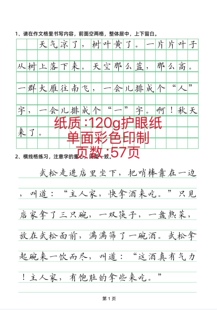 1、请在作文格里书写内容，前面空两格，整体居中，上下留白。
天气凉了，树叶黄了，一片片叶子
从树上落下来。天空那么蓝，那么高。一
群大雁往南飞，一会儿排成个“人”字，
一会儿排成个“一”字。啊！秋天
来了。
纸质:120g护眼纸
单面彩色印制
页数:57页
武松走进店里坐下，把哨棒靠在一边，
叫道：“主人家，快拿酒来吃。”只见
店家拿了三只碗，一双筷子，一盘熟菜，
放在武松面前，满满筛了一碗酒。武松拿
起碗来一饮而尽，叫道：“这酒真有气力
！主人家，有饱肚的拿些来吃。”
第 1 页